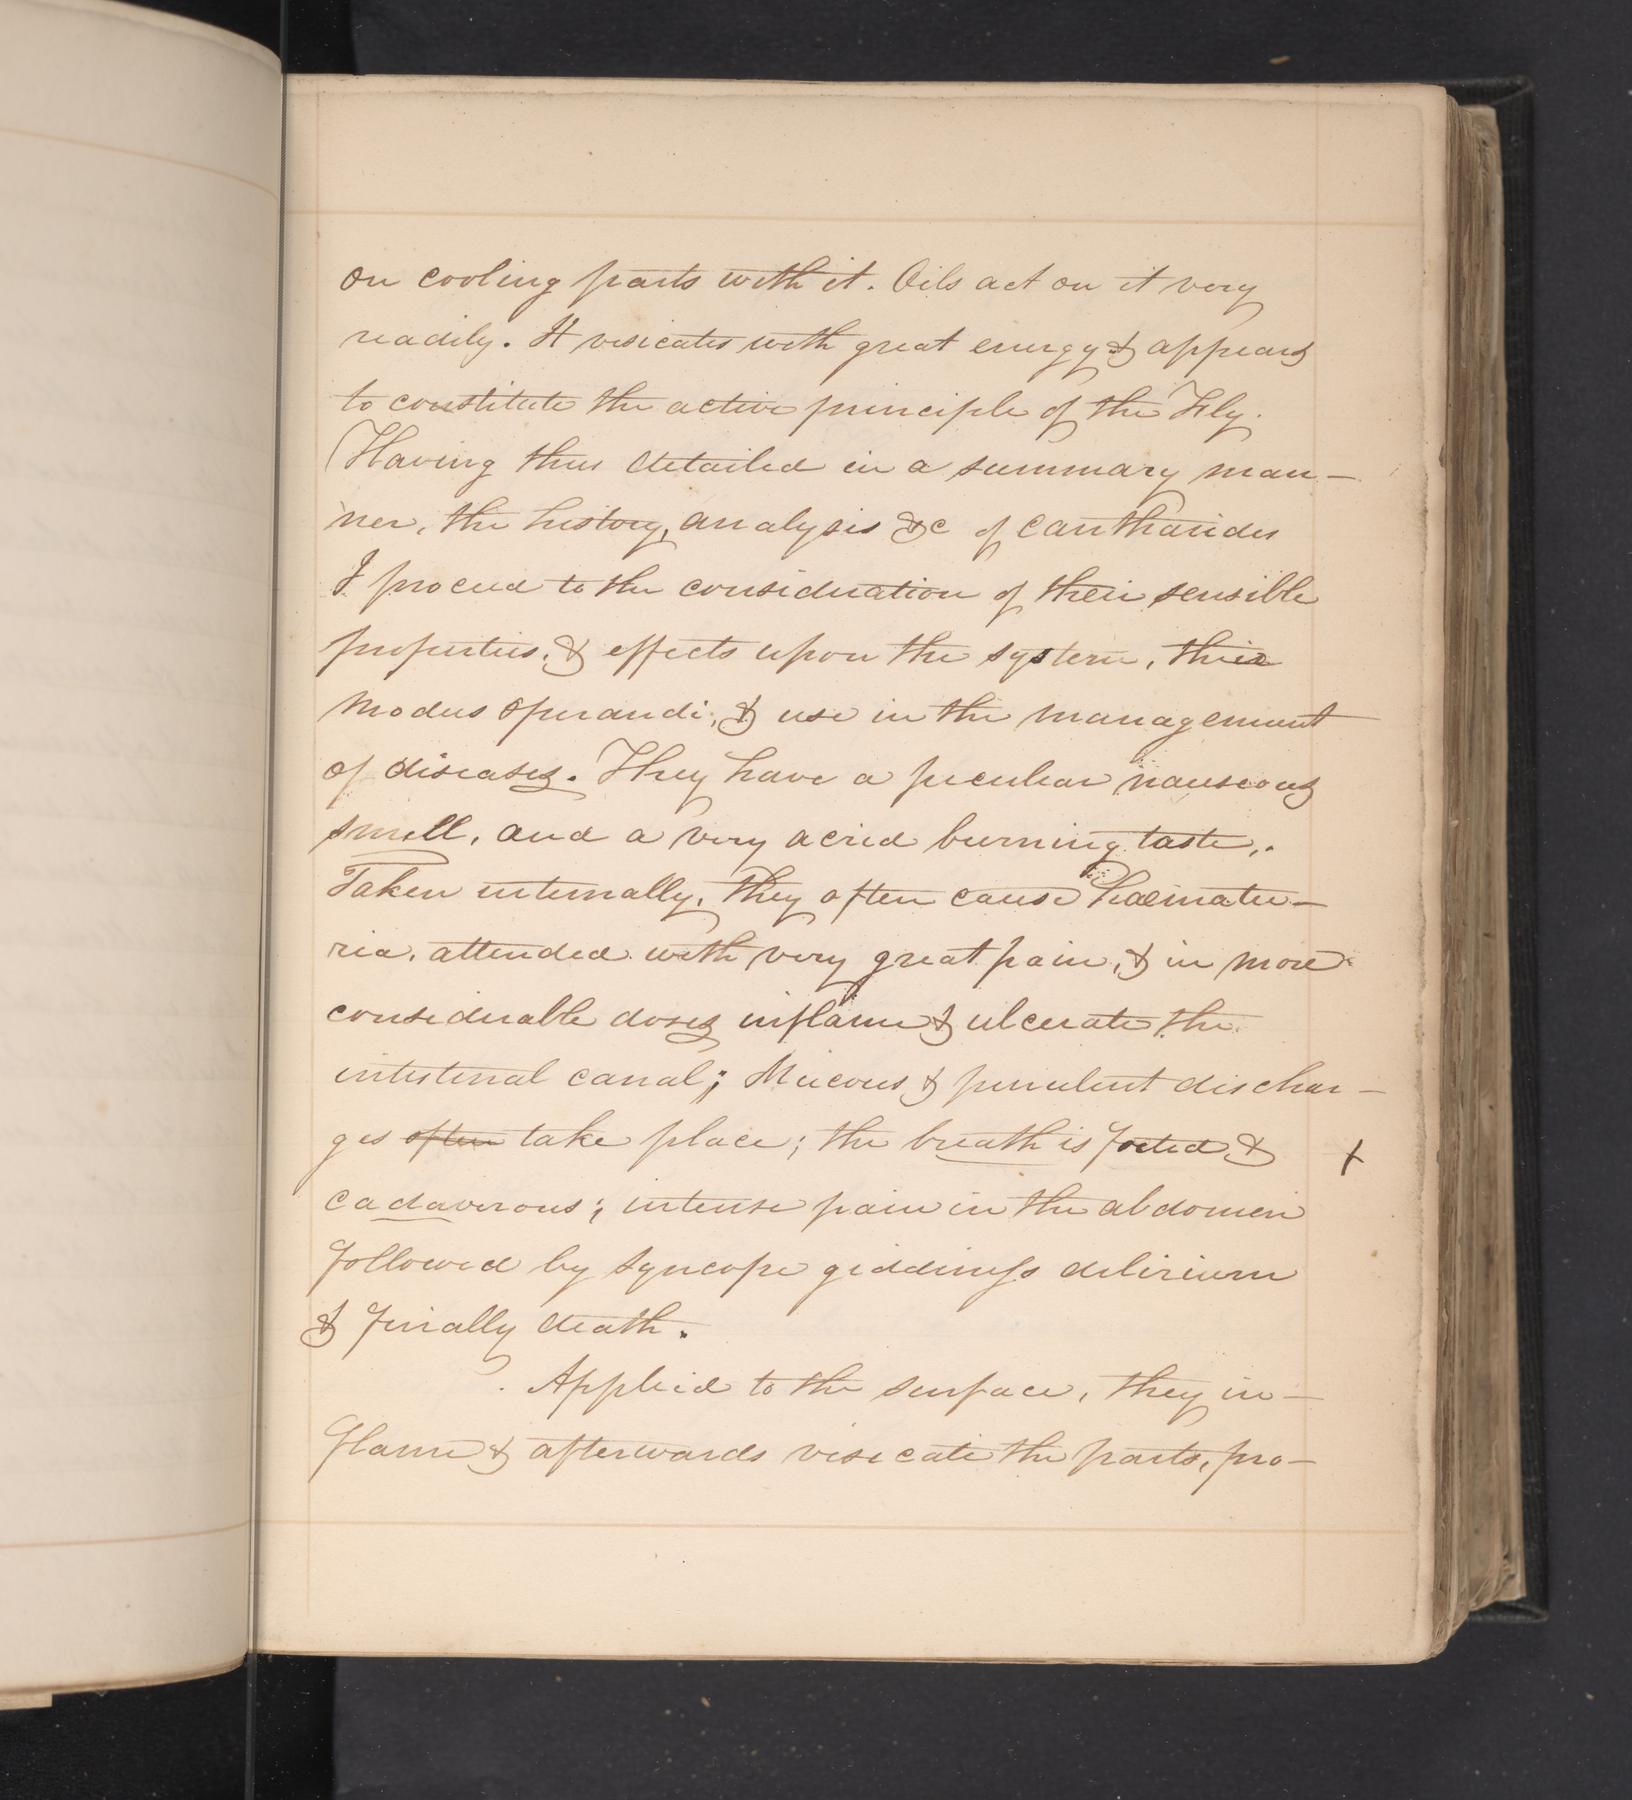 on cooling parts with it. Oils act on it very
readily. It vesicates with great energy & appears
to constitute the active principle of the Fly.
(Having thus detailed in a summary man-
ner, the history, analysis &c of cantharides
I proceed to the consideration of their sensible
properties, & effects upon the system, their
modus operandi, & use in the management
of diseases. They have a peculiar nauseous
smell, and a very acrid burning taste,.
Taken internally, they often cause haematu-
ria, attended with very great pain, & in more
considerable doses inflame & ulcerate the
intestinal canal; Mucous & purulent dischar-
ges often take place; the breath is foetid &
cadaverous; intense pain in the abdomen
followed by syncope giddiness delirium
& finally death.
Applied to the surface, they in-
flame & afterwards vesicate the parts, pro-